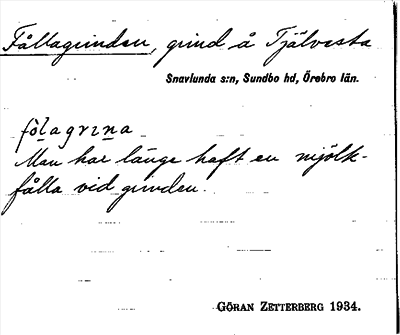 Fållagrinden, grind å Tjälvesta
Snavlunda s:n, Sundbo hd, Örebro län.
fo̊lagrɪna
Man har länge haft en mjölk-
fålla vid grinden.
GÖRAN ZETTERBERG 1934.